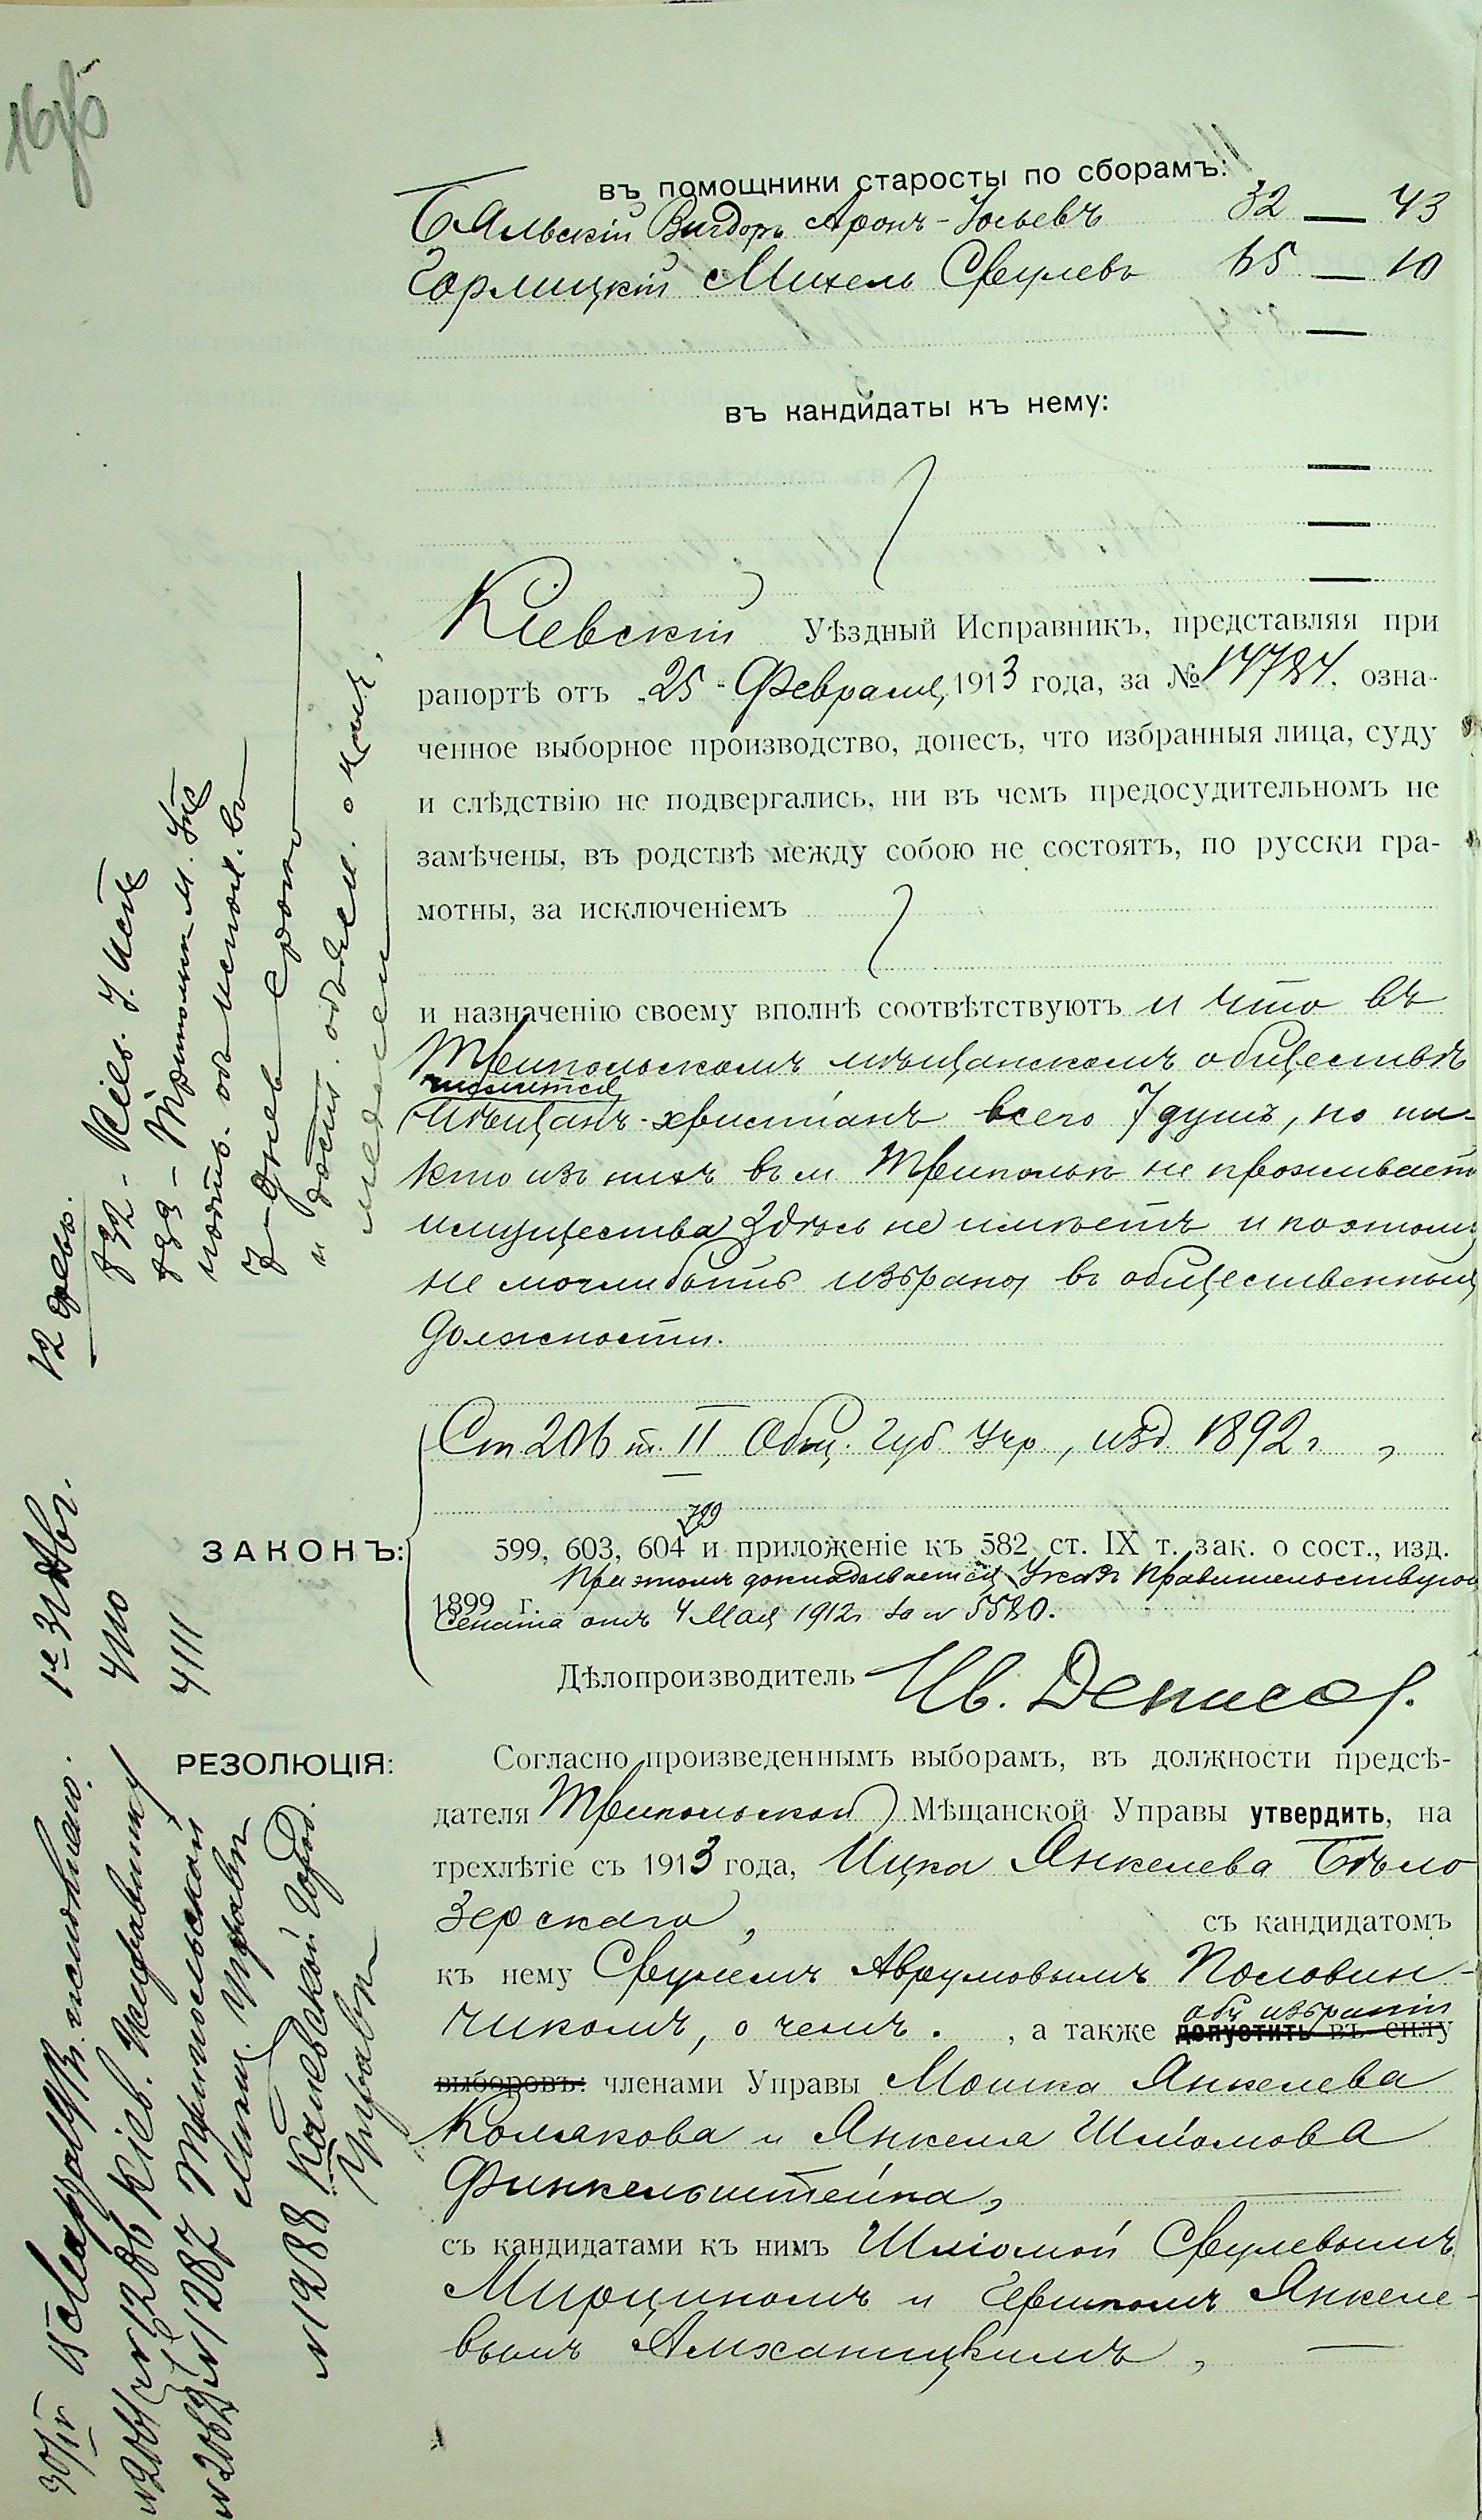 въ помощники старосты по сборамъ:
Бяльскій Вигдоръ Аронъ-Іосьевъ 32 — 43
Горлицкій Михель Срулевъ 65 — 10
—
въ кандидаты къ нему:
—
—
—
Кіевскій Уѣздный Исправникъ, представляя при
рапортѣ отъ „25“ Февраля 1913 года, за № 14784, озна-
ченное выборное производство, донесъ, что избранныя лица, суду
и слѣдствію не подвергались, ни въ чемъ предосудительномъ не
замѣчены, въ родствѣ между собою не состоятъ, по русски гра-
мотны, за исключеніемъ
и назначенію своему вполнѣ соотвѣтствуютъ и что въ
Трипольскомъ мѣщанскомъ обществѣ
числится
мѣщанъ-христіанъ всего 7 душъ, но ни-
кто изъ нихъ въ м Трипольѣ не проживаетъ
имущества здѣсь не имѣетъ и поэтому
не могли быть избраны въ общественныя
должности.
Ст 206 т. II Общ. Губ Учр, изд 1892 г,
799
ЗАКОНЪ: 599, 603, 604 и приложеніе къ 582 ст. IX т. зак. о сост., изд.
При этомъ докладывается Указъ Правительствующ
1899 г.
Сената отъ 4 Мая 1912 г за № 5580.
Дѣлопроизводитель Ив. Денисов.
РЕЗОЛЮЦІЯ: Согласно произведеннымъ выборамъ, въ должности предсѣ-
дателя Трипольской Мѣщанской Управы утвердить, на
трехлѣтіе съ 1913 года, Ицка Янкелева Бѣло
зерскаго, съ кандидатомъ
къ нему Срулемъ Аврумовымъ Половин-
чикомъ, о чемъ. , а также допустить въ силу
объ избраніи
выборовъ: членами Управы Мошка Янкелева
Колакова и Янкеля Шліомова
Финкельштейна,
съ кандидатами къ нимъ Шліомой Срулевымъ
Мирциномъ и Гершкомъ Янкеле-
вымъ Амханицкимъ,
12 февр.
832 - Кіев. У. Исп
833 - Трипольск М. Упр
подтв. объ исполн. въ
7-дневн срокъ
1е 31 Авг.
4110
4111
30/IV
№ 1286 Кіев. Исправнику
№ 1287 Трипольской
Мѣщ. Управѣ
№ 1288 Каневской Город.
Управѣ